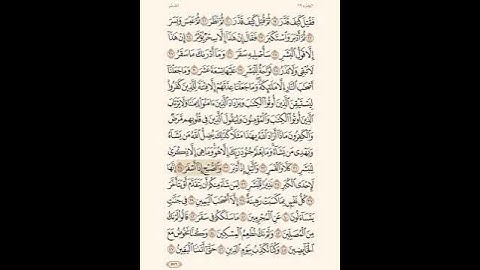 فَقُتِلَ كَيْفَ قَدَّرَ ١٩ ثُمَّ قُتِلَ كَيْفَ قَدَّرَ ٢٠ ثُمَّ نَظَرَ ٢١ ثُمَّ عَبَسَ وَبَسَرَ
٢٢ ثُمَّ أَدْبَرَ وَٱسْتَكْبَرَ ٢٣ فَقَالَ إِنْ هَٰذَآ إِلَّا سِحْرٌ يُؤْثَرُ ٢٤ إِنْ هَٰذَآ
إِلَّا قَوْلُ ٱلْبَشَرِ ٢٥ سَأُصْلِيهِ سَقَرَ ٢٦ وَمَآ أَدْرَىٰكَ مَا سَقَرُ ٢٧
لَا تُبْقِى وَلَا تَذَرُ ٢٨ لَوَّاحَةٌ لِّلْبَشَرِ ٢٩ عَلَيْهَا تِسْعَةَ عَشَرَ ٣٠ وَمَا جَعَلْنَآ
أَصْحَٰبَ ٱلنَّارِ إِلَّا مَلَٰٓئِكَةً وَمَا جَعَلْنَا عِدَّتَهُمْ إِلَّا فِتْنَةً لِّلَّذِينَ كَفَرُوا۟
لِيَسْتَيْقِنَ ٱلَّذِينَ أُوتُوا۟ ٱلْكِتَٰبَ وَيَزْدَادَ ٱلَّذِينَ ءَامَنُوٓا۟ إِيمَٰنًا وَلَا يَرْتَابَ
ٱلَّذِينَ أُوتُوا۟ ٱلْكِتَٰبَ وَٱلْمُؤْمِنُونَ وَلِيَقُولَ ٱلَّذِينَ فِى قُلُوبِهِم مَّرَضٌ
وَٱلْكَٰفِرُونَ مَاذَآ أَرَادَ ٱللَّهُ بِهَٰذَا مَثَلًا كَذَٰلِكَ يُضِلُّ ٱللَّهُ مَن يَشَآءُ
وَيَهْدِى مَن يَشَآءُ وَمَا يَعْلَمُ جُنُودَ رَبِّكَ إِلَّا هُوَ وَمَا هِىَ إِلَّا ذِكْرَىٰ
لِلْبَشَرِ ٣١ كَلَّا وَٱلْقَمَرِ ٣٢ وَٱلَّيْلِ إِذْ أَدْبَرَ ٣٣ وَٱلصُّبْحِ إِذَآ أَسْفَرَ ٣٤ إِنَّهَا
لَإِحْدَى ٱلْكُبَرِ ٣٥ نَذِيرًا لِّلْبَشَرِ ٣٦ لِمَن شَآءَ مِنكُمْ أَن يَتَقَدَّمَ أَوْ يَتَأَخَّرَ
٣٧ كُلُّ نَفْسٍۭ بِمَا كَسَبَتْ رَهِينَةٌ ٣٨ إِلَّآ أَصْحَٰبَ ٱلْيَمِينِ ٣٩ فِى جَنَّٰتٍ
يَتَسَآءَلُونَ ٤٠ عَنِ ٱلْمُجْرِمِينَ ٤١ مَا سَلَكَكُمْ فِى سَقَرَ ٤٢ قَالُوا۟ لَمْ نَكُ
مِنَ ٱلْمُصَلِّينَ ٤٣ وَلَمْ نَكُ نُطْعِمُ ٱلْمِسْكِينَ ٤٤ وَكُنَّا نَخُوضُ مَعَ
ٱلْخَآئِضِينَ ٤٥ وَكُنَّا نُكَذِّبُ بِيَوْمِ ٱلدِّينِ ٤٦ حَتَّىٰٓ أَتَىٰنَا ٱلْيَقِينُ ٤٧
٥٧٦